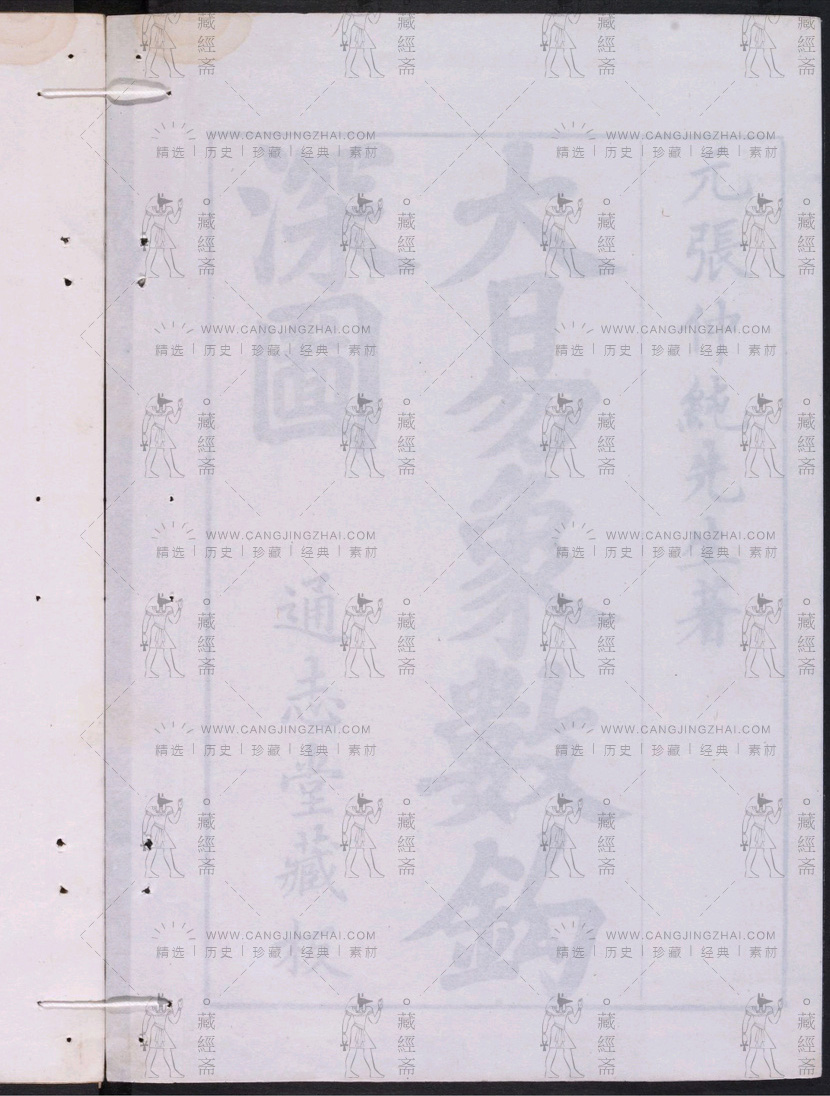 元張仲純先生著
大易象數鈎
深圖
通志堂藏板
藏經斋
WWW.CANGJINGZHAI.COM
精选 | 历史 | 珍藏 | 经典 | 素材